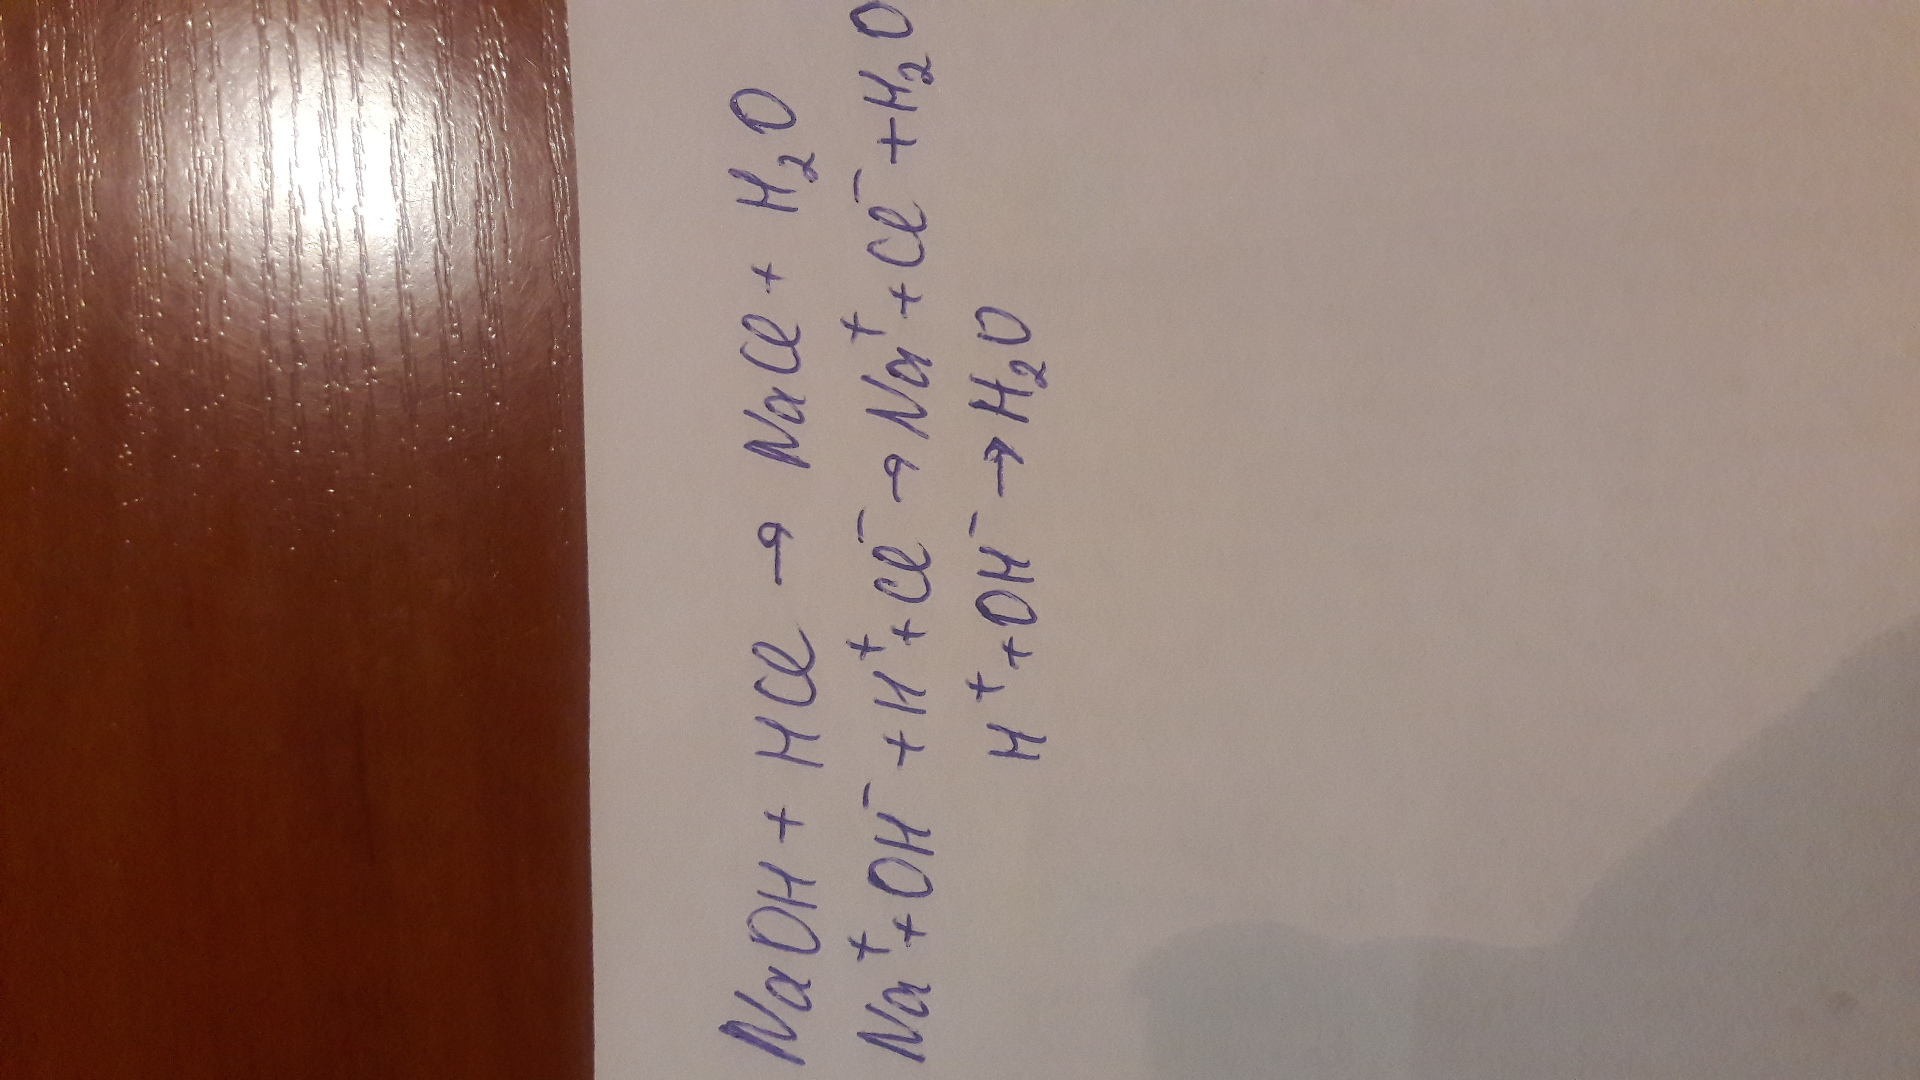 NaOH + HCl → NaCl + H₂O
Na⁺+OH⁻+H⁺+Cl⁻→Na⁺+Cl⁻+H₂O
H⁺+OH⁻→H₂O